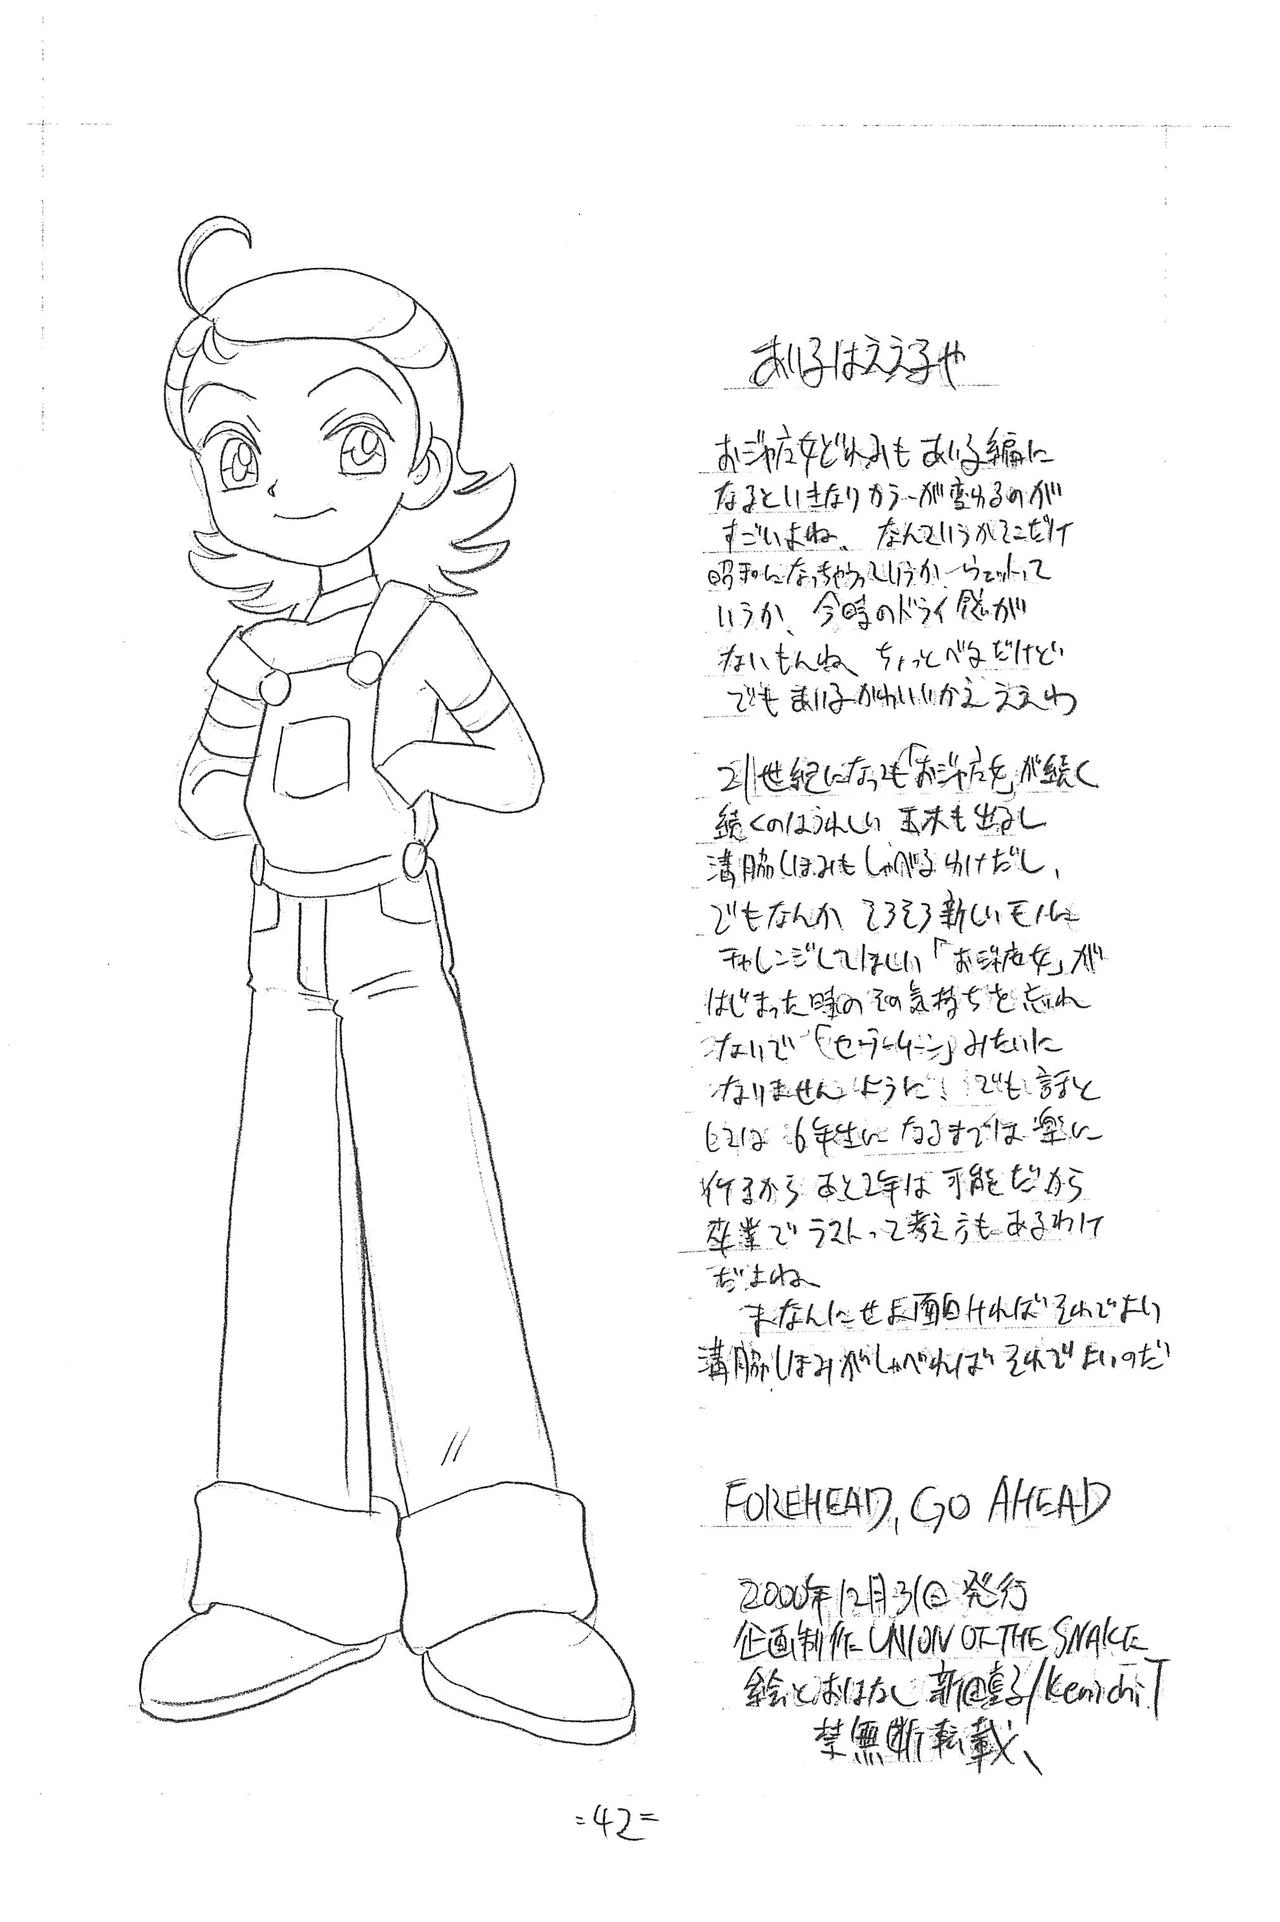 あいこはええこや
おジャ魔女どれみも あいこ編に
なるといきなりカラーが変わるのが
すごいよね、なんていうかそこだけ
昭和になっちゃうっていうか ウェットって
いうか、今時のドライ感が
ないもんね ちょっとベタだけど
でも あいこがかわいいからええわ
21世紀になっても「おジャ魔女」が続く
続くのはうれしい 玉木も出るし
溝脇しほみもしゃべるわけだし、
でもなんか そろそろ新しいモノに
チャレンジしてほしい「おジャ魔女」が
はじまった時のその気持ちを忘れ
ないで「セーラームーン」みたいに
なりませんように! でも 話と
しては 6年生に なるまでは 楽に
行けるから あと2年は 可能だから
卒業で ラストって考え方も あるわけ
だよね
まなんにせよ面白ければ それでよい
溝脇しほみがしゃべれば それでよいのだ
FOREHEAD, GO AHEAD
2000年12月31日 発行
企画制作 UNION OF THE SNAKE
絵とおはなし 新田真子/Kenichi.T
禁無断転載、
=42=